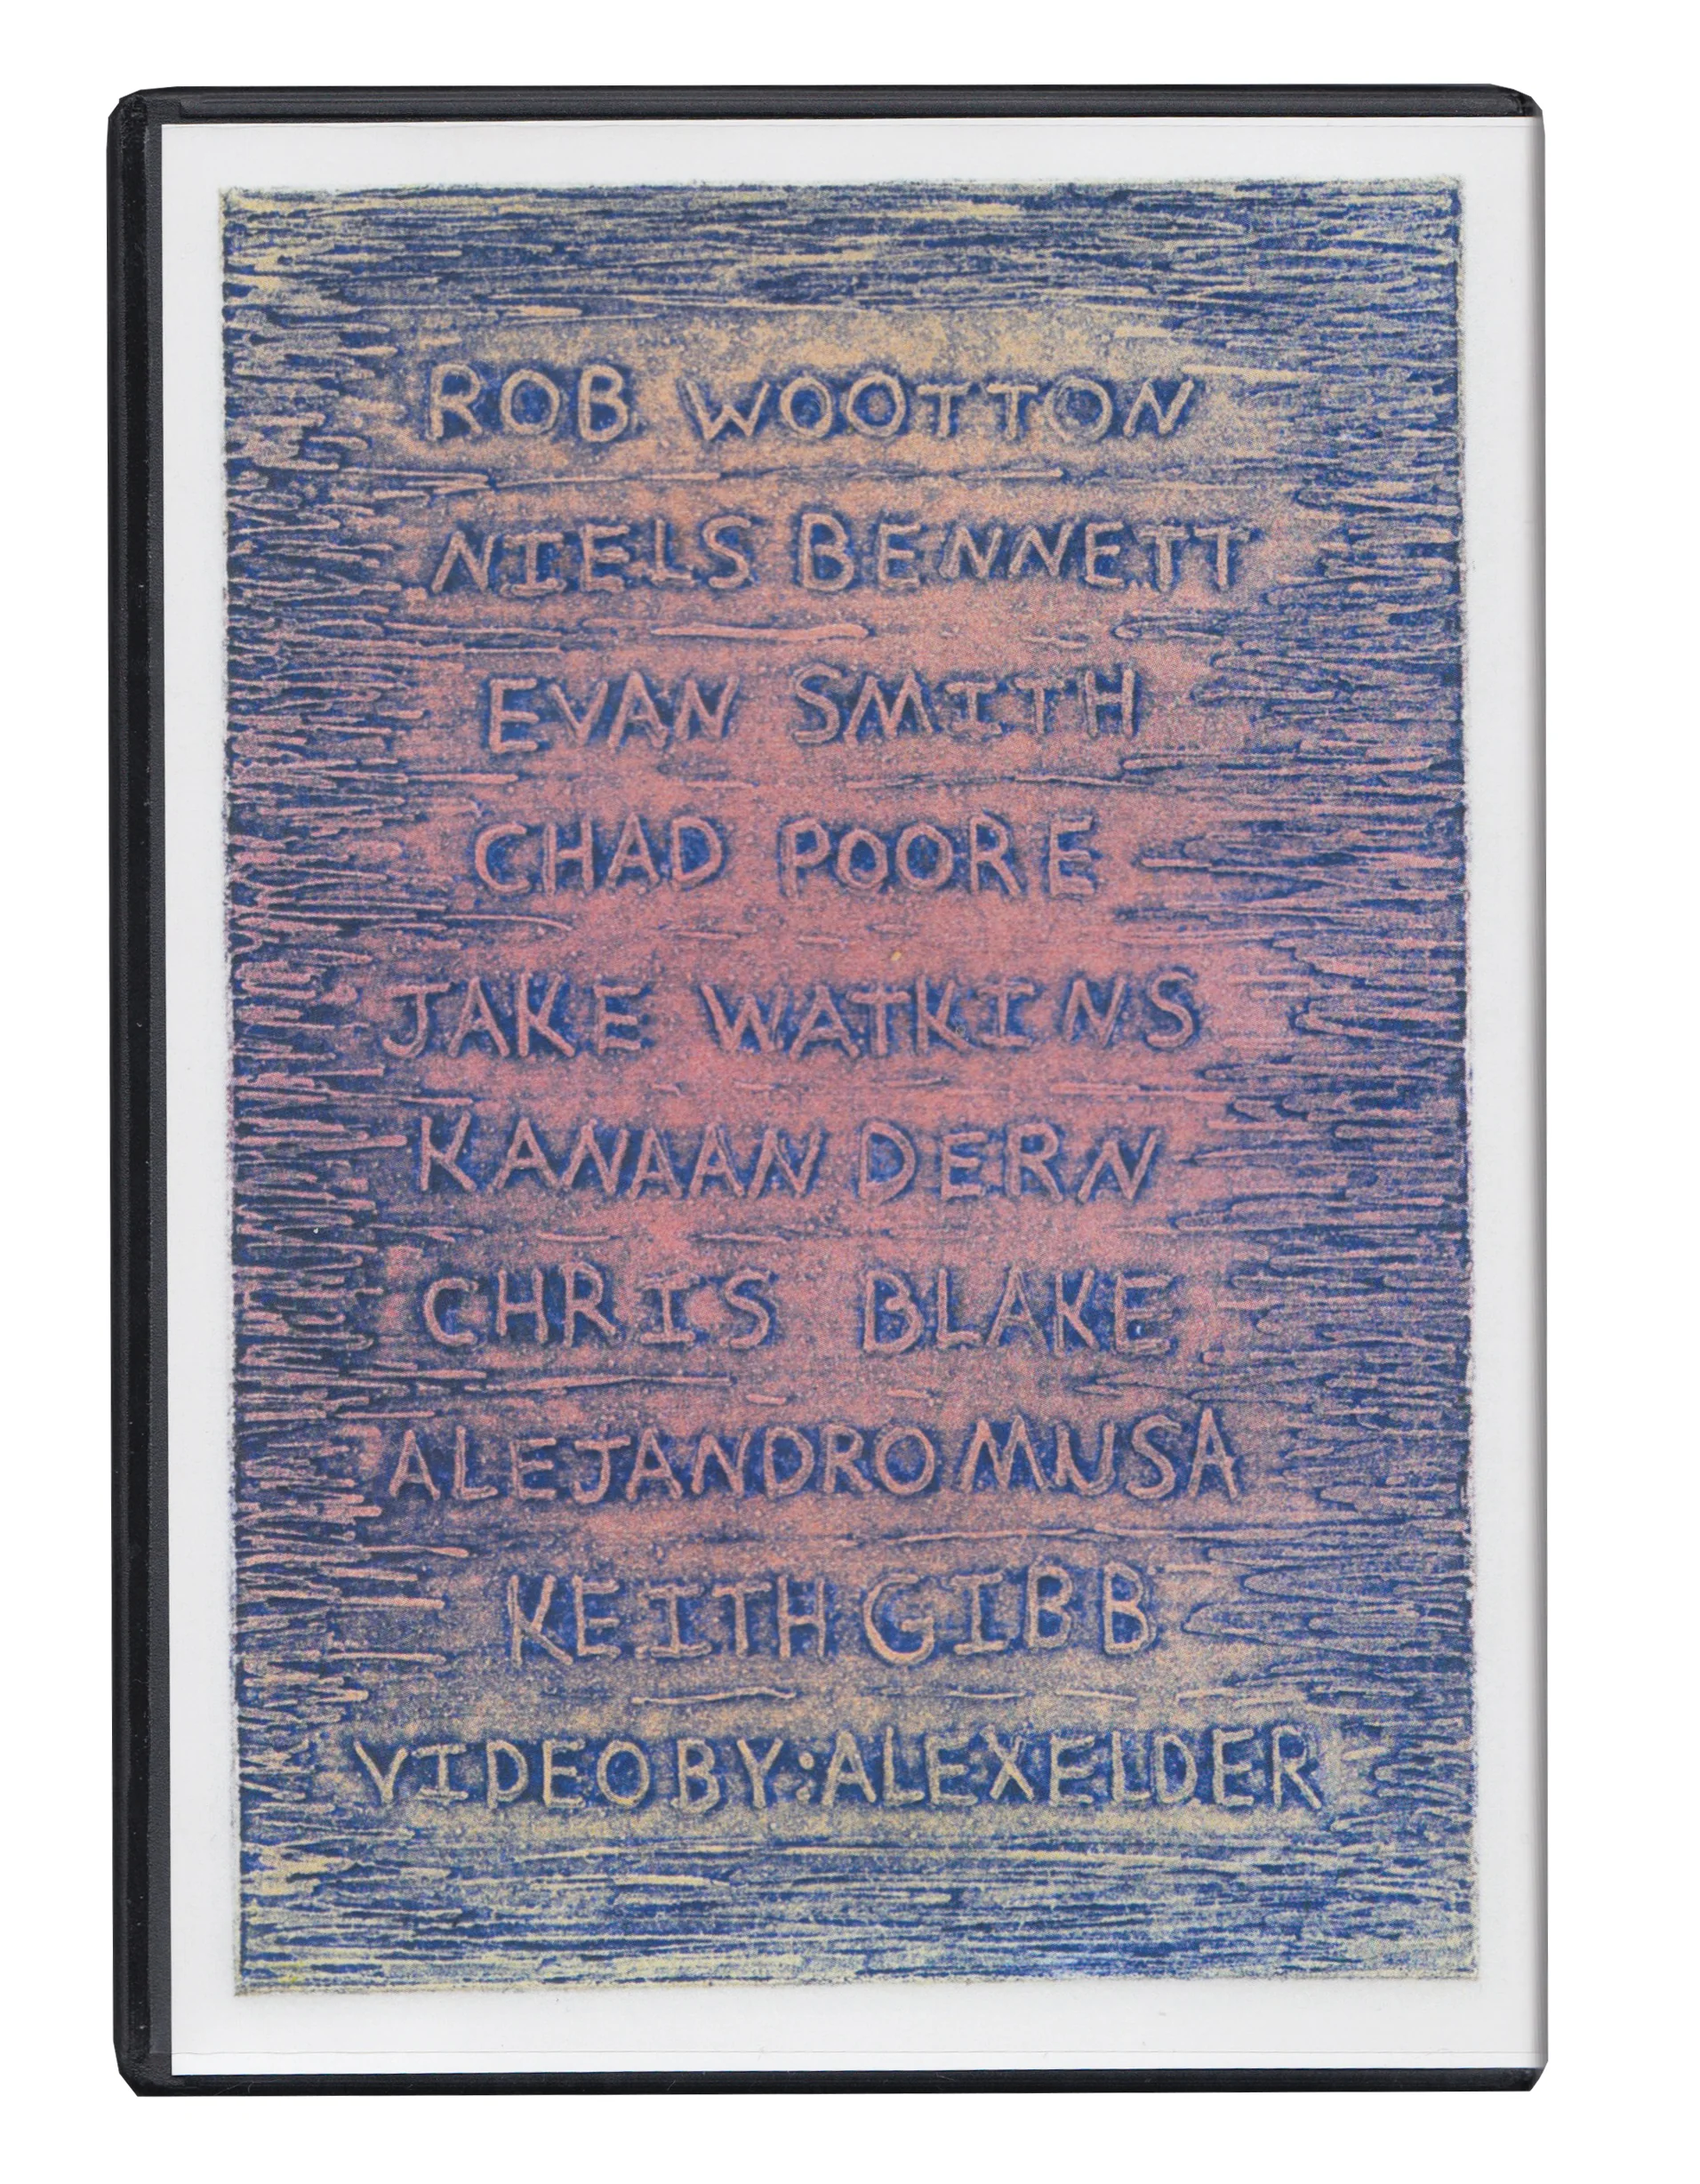 ROB WOOTTON
NIELS BENNETT
EVAN SMITH
CHAD POORE
JAKE WATKINS
KANAAN DERN
CHRIS BLAKE
ALEJANDRO MUSA
KEITH GIBB
VIDEO BY: ALEX ELDER